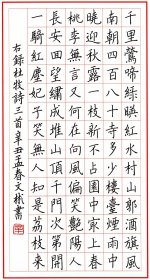 千里鶯啼綠映紅水村山郭酒旗風
南朝四百八十寺多少樓臺煙雨中
曉迎秋露一枝新不占園中最上春
桃李無言又何在向風偏笑艷陽人
長安回望繡成堆山頂千門次第開
一騎紅塵妃子笑無人知是荔枝來
右錄杜牧詩三首辛丑孟春文彬書